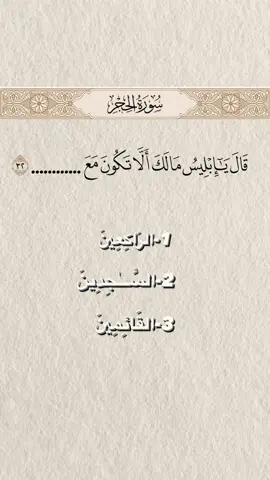 سُورَةُ الحِجْر
قَالَ يَٰٓإِبْلِيسُ مَا لَكَ أَلَّا تَكُونَ مَعَ ............ ٣٢
1-الرَّاكِعِينَ
2-السَّٰجِدِينَ
3-القَائِمِينَ